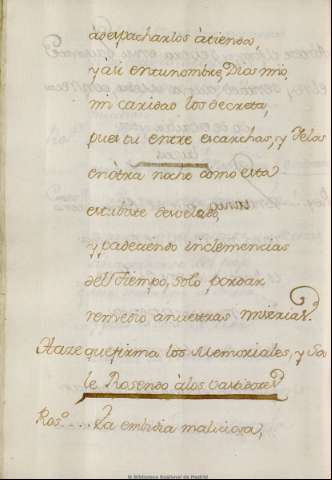 àdespacharlos àtiendo,
y asi entunombre, Dios mio,
mi caridad los decreta,
pues tu entre escarchas, y Yelos
en ôtra noche como esta
estubiste desvelado,
y padeciendo inclemencias
del Tiempo, solo pordar
remedio anuestras miserias.
Haze quefirma los Memoriales, y Sa
le Rosendo àlos bastidores
Ros.º .... La embidia maliciosa,
© Biblioteca Regional de Madrid